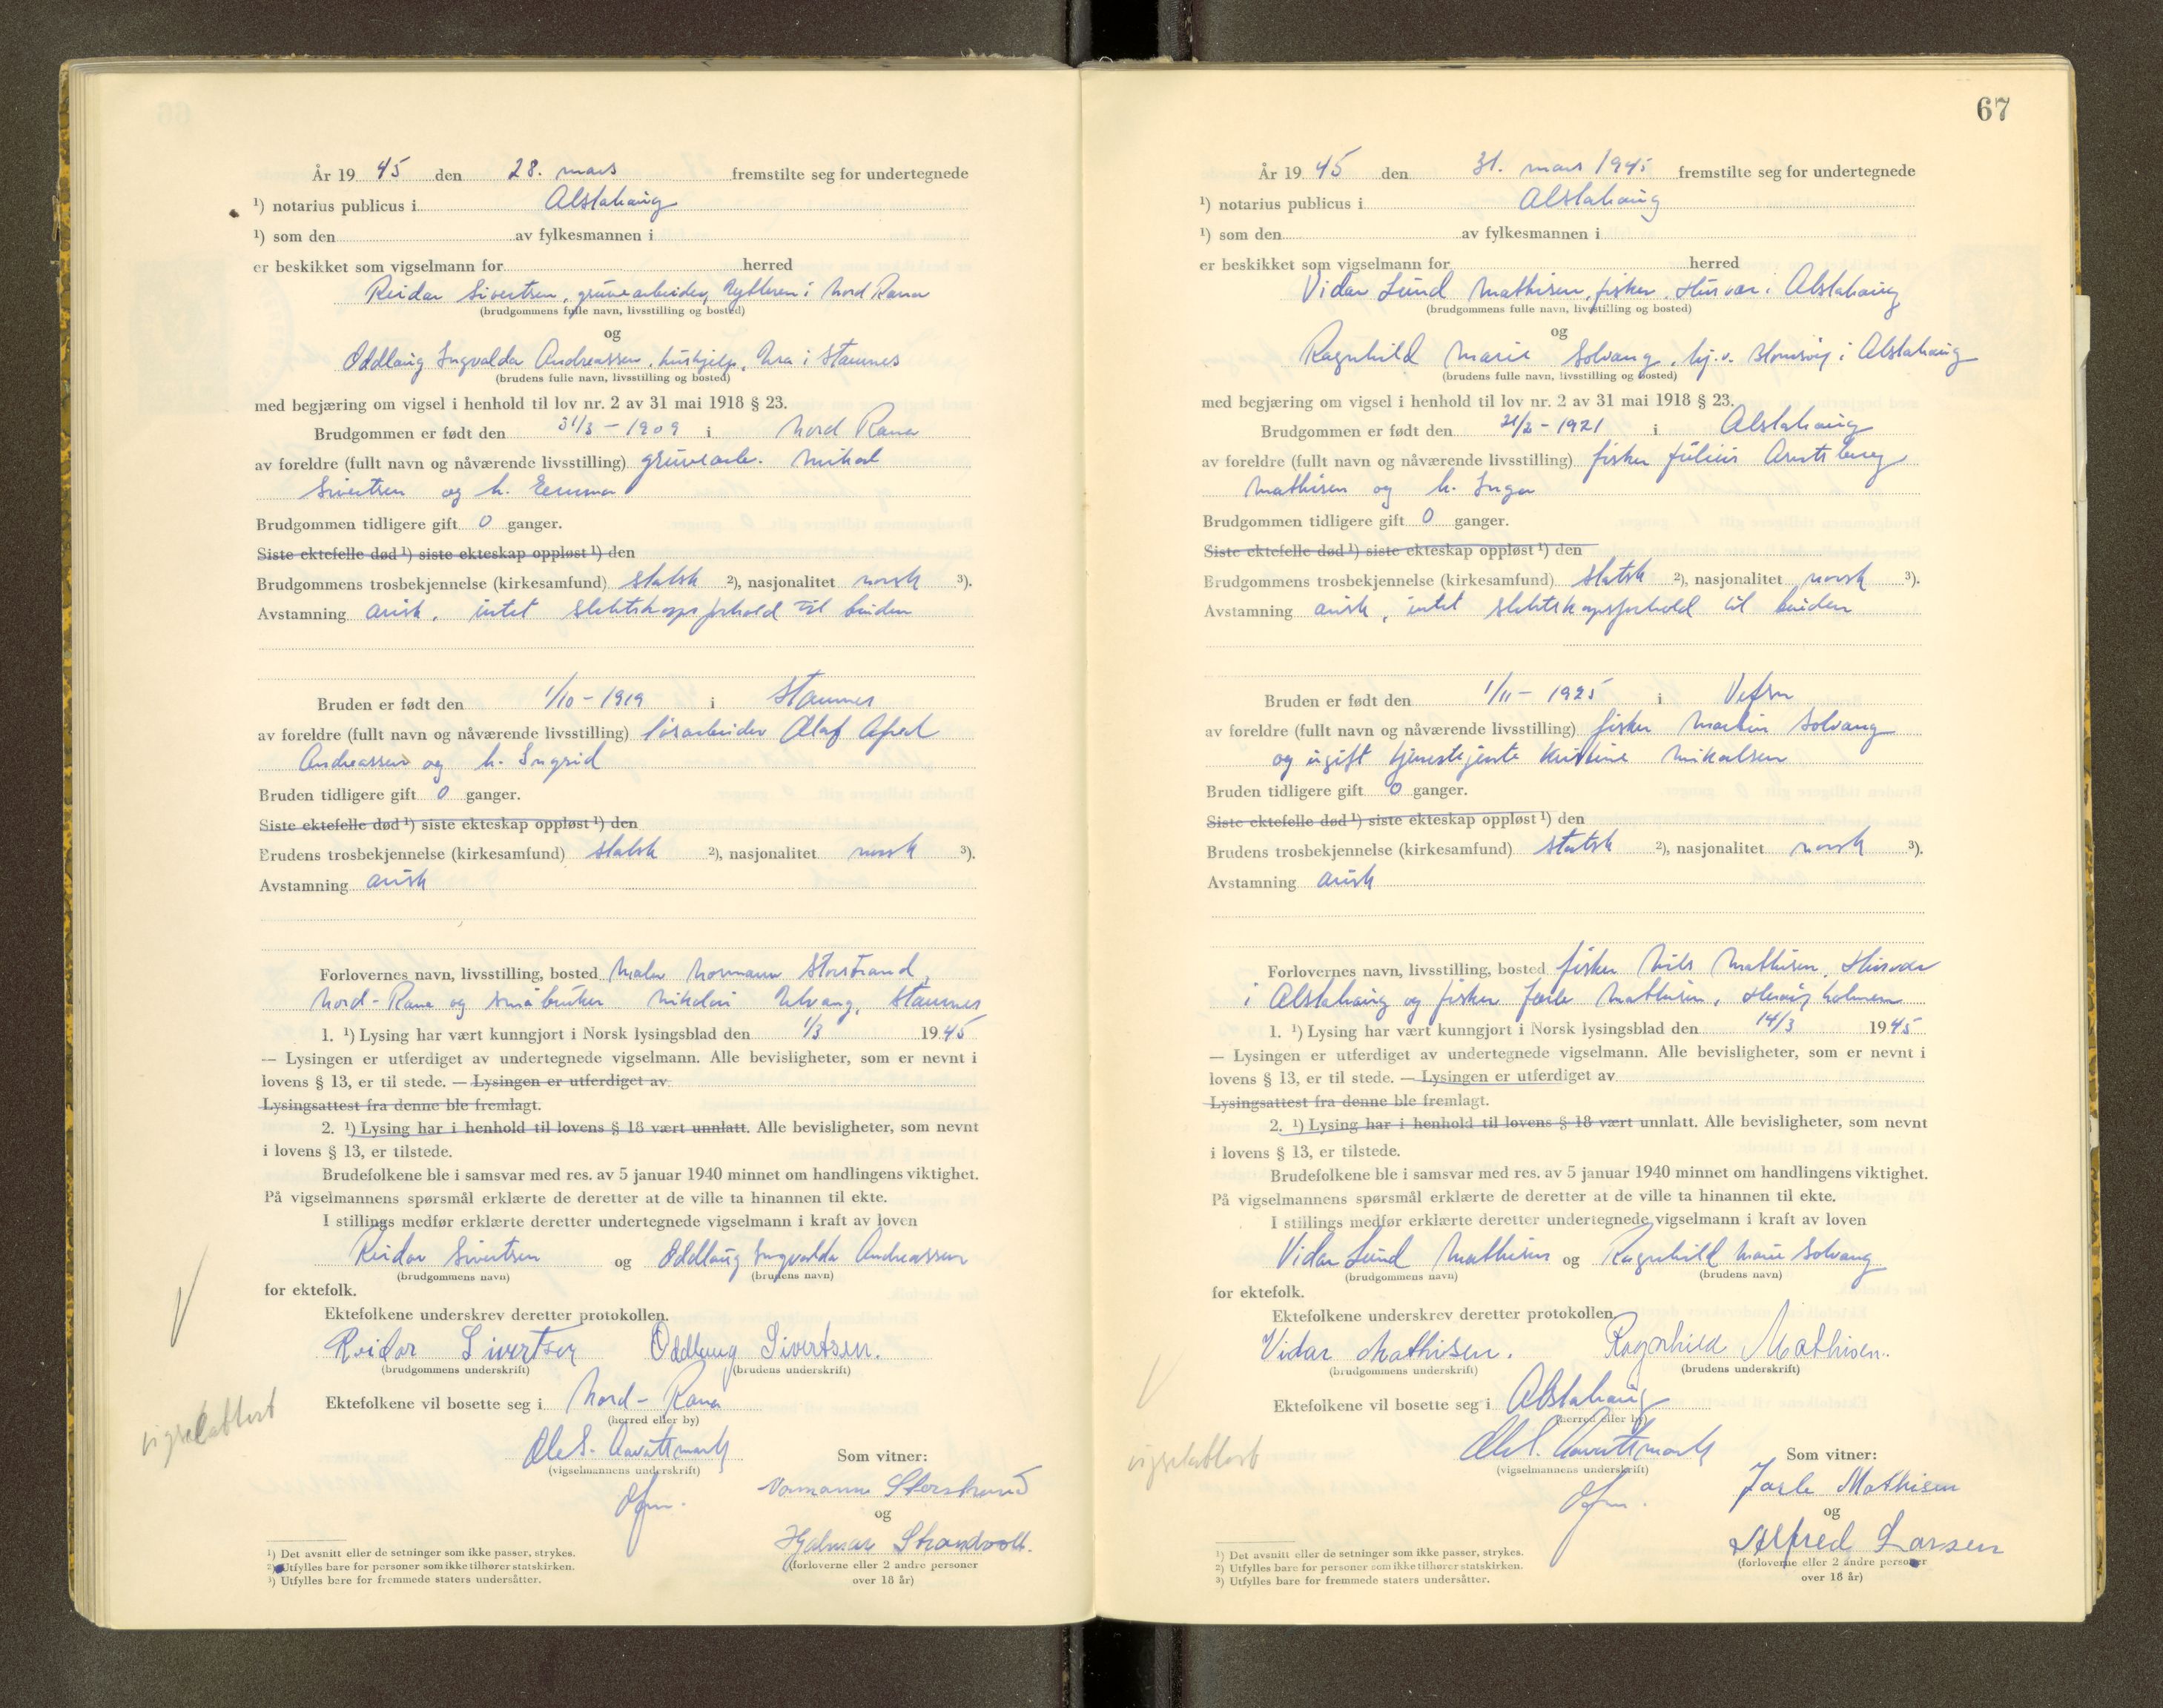 År 19 45 den 28. mars fremstilte seg for undertegnede
¹) notarius publicus i Alstahaug
¹) som den av fylkesmannen i
er beskikket som vigselmann for herred
Reidar Sivertsen, gruvearbeider, i Nord Rana
(brudgommens fulle navn, livsstilling og bosted)
og
Oddlaug Ingvalda Andreassen, hushjelp, i Stamnes
(brudens fulle navn, livsstilling og bosted)
med begjæring om vigsel i henhold til lov nr. 2 av 31 mai 1918 § 23.
Brudgommen er født den 31/3 - 1909 i Nord Rana
av foreldre (fullt navn og nåværende livsstilling) gruvearb. Mikal
Sivertsen og h. Emma
Brudgommen tidligere gift 0 ganger.
Siste ektefelle død ¹) siste ekteskap oppløst ¹) den
Brudgommens trosbekjennelse (kirkesamfund) statsk ²), nasjonalitet norsk ³).
Avstamning arisk, intet slektskapsforhold til bruden
Bruden er født den 1/10 - 1919 i Stamnes
av foreldre (fullt navn og nåværende livsstilling) løsarbeider Olaf
Andreassen og h. Ingrid
Bruden tidligere gift 0 ganger.
Siste ektefelle død ¹) siste ekteskap oppløst ¹) den
Brudens trosbekjennelse (kirkesamfund) statsk ²), nasjonalitet norsk ³).
Avstamning arisk
Forlovernes navn, livsstilling, bosted Maler Normann Storstrand,
Nord-Rana og småbruker Nikolai Ulvang, Stamnes
1. ¹) Lysing har vært kunngjort i Norsk lysingsblad den 1/3 1945
— Lysingen er utferdiget av undertegnede vigselmann. Alle bevisligheter, som er nevnt i
lovens § 13, er til stede. — Lysingen er utferdiget av
Lysingsattest fra denne ble fremlagt.
2. ¹) Lysing har i henhold til lovens § 18 vært unnlatt. Alle bevisligheter, som nevnt
i lovens § 13, er tilstede.
Brudefolkene ble i samsvar med res. av 5 januar 1940 minnet om handlingens viktighet.
På vigselmannens spørsmål erklærte de deretter at de ville ta hinannen til ekte.
I stillings medfør erklærte deretter undertegnede vigselmann i kraft av loven
Reidar Sivertsen og Oddlaug Ingvalda Andreassen
(brudgommens navn) (brudens navn)
for ektefolk.
Ektefolkene underskrev deretter protokollen.
Reidar Sivertsen Oddlaug Sivertsen.
(brudgommens underskrift) (brudens underskrift)
Ektefolkene vil bosette seg i Nord-Rana
(herred eller by)
vigselattest
Som vitner:
(vigselmannens underskrift)
Normann Storstrand
og
Hjalmar
(forloverne eller 2 andre personer
over 18 år)
¹) Det avsnitt eller de setninger som ikke passer, strykes.
²) Utfylles bare for personer som ikke tilhører statskirken.
³) Utfylles bare for fremmede staters undersåtter.
67
År 19 45 den 31. mars 1945 fremstilte seg for undertegnede
¹) notarius publicus i Alstahaug
¹) som den av fylkesmannen i
er beskikket som vigselmann for herred
Vidar Lund Mathisen, fisker, Husvær i Alstahaug
(brudgommens fulle navn, livsstilling og bosted)
og
Ragnhild Marie Solvang, hj.v. i Alstahaug
(brudens fulle navn, livsstilling og bosted)
med begjæring om vigsel i henhold til lov nr. 2 av 31 mai 1918 § 23.
Brudgommen er født den 21/2 - 1921 i Alstahaug
av foreldre (fullt navn og nåværende livsstilling) fisker Julius Arntsberg
Mathisen og h. Inga
Brudgommen tidligere gift 0 ganger.
Siste ektefelle død ¹) siste ekteskap oppløst ¹) den
Brudgommens trosbekjennelse (kirkesamfund) statsk ²), nasjonalitet norsk ³).
Avstamning arisk, intet slektskapsforhold til bruden
Bruden er født den 1/11 - 1925 i Vefsn
av foreldre (fullt navn og nåværende livsstilling) fisker Martin Solvang
og ugift tjenestejente Kristine Mikalsen
Bruden tidligere gift 0 ganger.
Siste ektefelle død ¹) siste ekteskap oppløst ¹) den
Brudens trosbekjennelse (kirkesamfund) statsk ²), nasjonalitet norsk ³).
Avstamning arisk
Forlovernes navn, livsstilling, bosted fisker Nils Mathisen, Husvær
i Alstahaug og fisker Jarle Mathisen,
1. ¹) Lysing har vært kunngjort i Norsk lysingsblad den 14/3 1945
— Lysingen er utferdiget av undertegnede vigselmann. Alle bevisligheter, som er nevnt i
lovens § 13, er til stede. — Lysingen er utferdiget av
Lysingsattest fra denne ble fremlagt.
2. ¹) Lysing har i henhold til lovens § 18 vært unnlatt. Alle bevisligheter, som nevnt
i lovens § 13, er tilstede.
Brudefolkene ble i samsvar med res. av 5 januar 1940 minnet om handlingens viktighet.
På vigselmannens spørsmål erklærte de deretter at de ville ta hinannen til ekte.
I stillings medfør erklærte deretter undertegnede vigselmann i kraft av loven
Vidar Lund Mathisen og Ragnhild Marie Solvang
(brudgommens navn) (brudens navn)
for ektefolk.
Ektefolkene underskrev deretter protokollen.
Vidar Mathisen. Ragnhild Mathisen.
(brudgommens underskrift) (brudens underskrift)
Ektefolkene vil bosette seg i Alstahaug
(herred eller by)
vigselattest
Som vitner:
(vigselmannens underskrift)
Jarle Mathisen
og
Alfred Larsen
(forloverne eller 2 andre personer
over 18 år)
¹) Det avsnitt eller de setninger som ikke passer, strykes.
²) Utfylles bare for personer som ikke tilhører statskirken.
³) Utfylles bare for fremmede staters undersåtter.